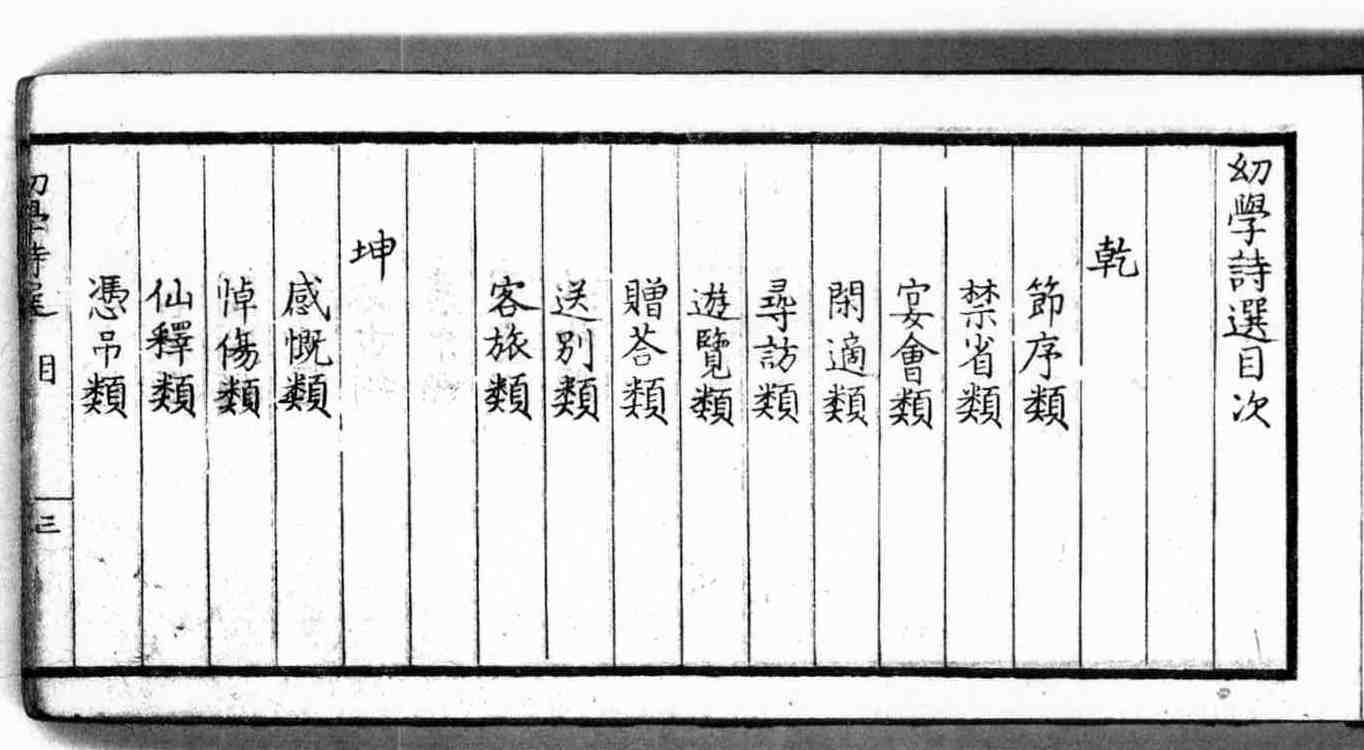 幼學詩選目次
乾
節序類
禁省類
宴會類
閑適類
尋訪類
遊覽類
贈荅類
送別類
客旅類
坤
感慨類
悼傷類
仙釋類
憑吊類
幼學詩選 目 三